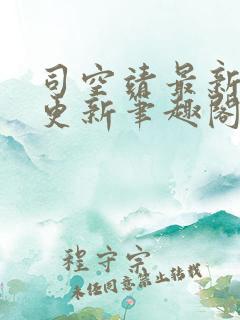 司空靖最新
更新笔趣阁
程守宗
未经同意禁止转载